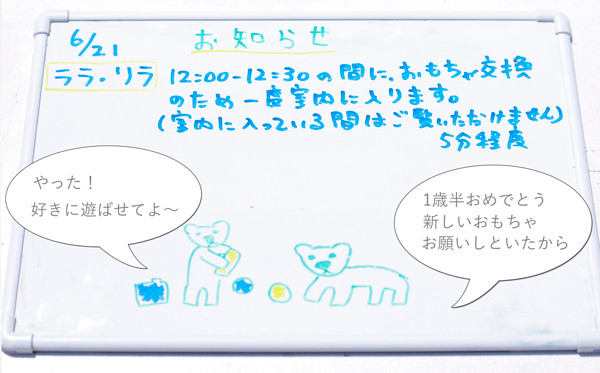 6/21
お知らせ
ララ・リラ
12:00-12:30の間に、おもちゃ交換
のため一度室内に入ります。
(室内に入っている間はご覧いただけません)
5分程度
やった！
好きに遊ばせてよ～
1歳半おめでとう
新しいおもちゃ
お願いしといたから